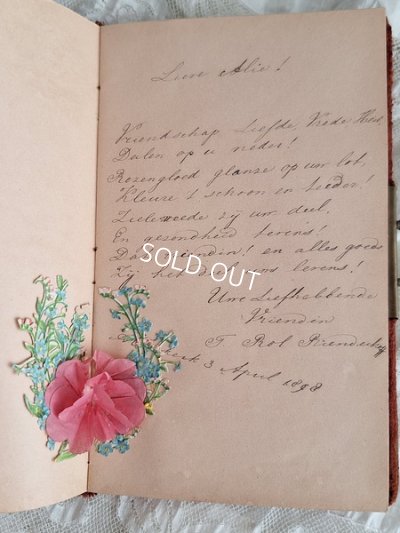 Lieve Alie!
Vriendschap, Liefde, Vrede
Dalen op u neder!
Rozengloed glanze op uw lot,
Kleure 't schoon en teeder!
Zielevrede zij uw deel,
En gezondheid tevens!
vriendin! en alles goeds
Zij het levens!
SOLD OUT
Uwe Liefhebbende
Vriendin
T Bol
3 April 1898